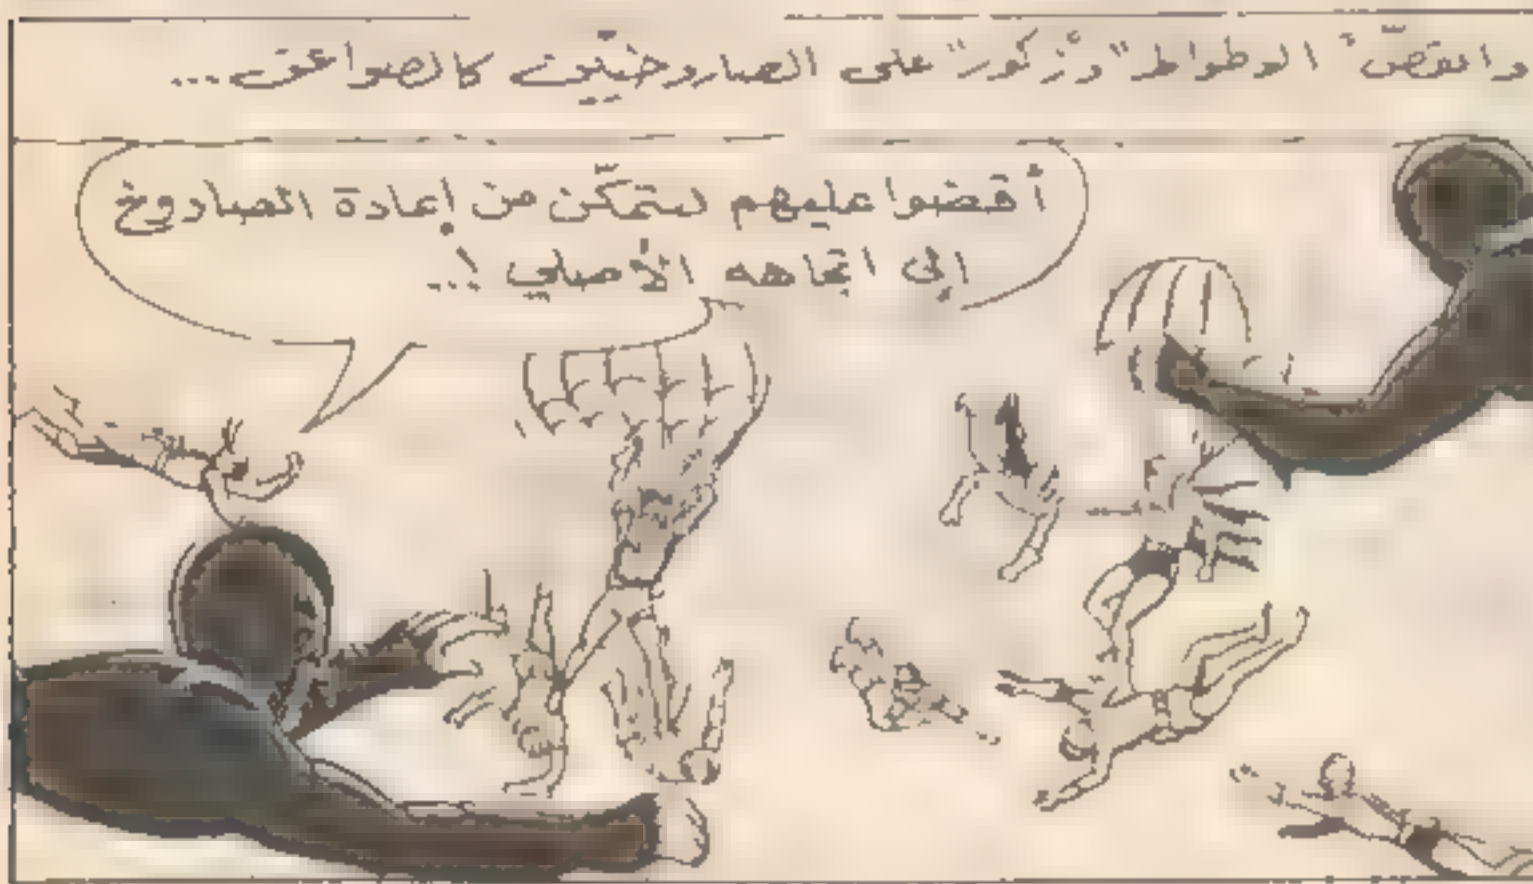 وانقضّ الوطواط "وزكور" على الصاروخيّين كالصواعق...
أقضوا عليهم لنتمكّن من إعادة الصاروخ
إلى اتجاهه الأصلي !...